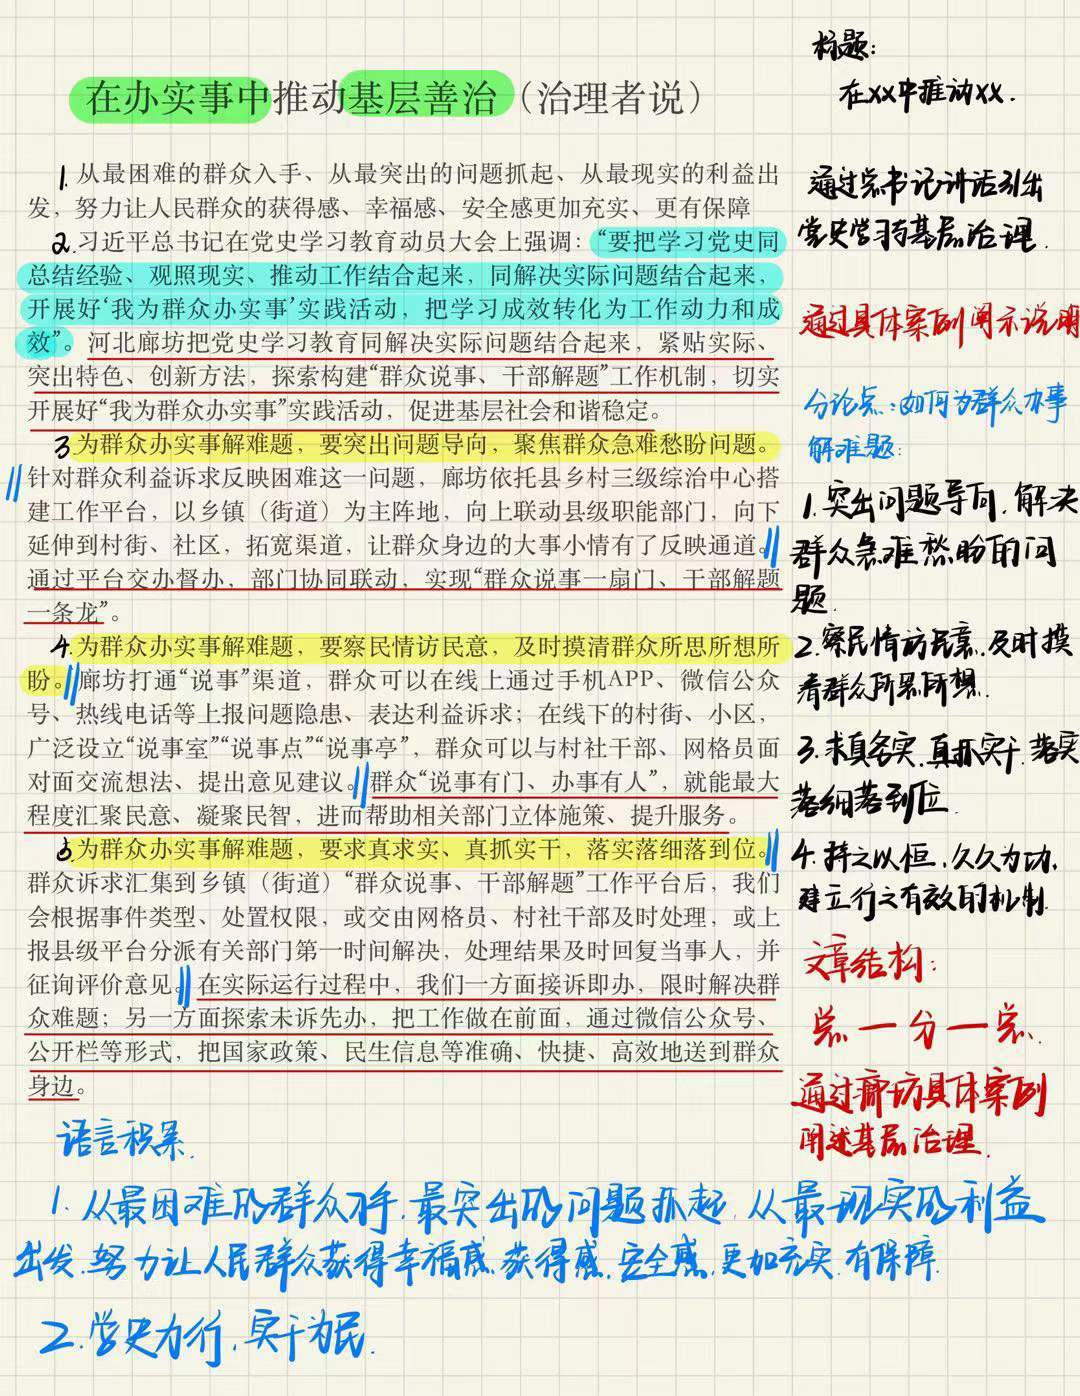 在办实事中推动基层善治（治理者说）
1.从最困难的群众入手、从最突出的问题抓起、从最现实的利益出
发，努力让人民群众的获得感、幸福感、安全感更加充实、更有保障
2.习近平总书记在党史学习教育动员大会上强调：“要把学习党史同
总结经验、观照现实、推动工作结合起来，同解决实际问题结合起来，
开展好‘我为群众办实事’实践活动，把学习成效转化为工作动力和成
效”。河北廊坊把党史学习教育同解决实际问题结合起来，紧贴实际、
突出特色、创新方法，探索构建“群众说事、干部解题”工作机制，切实
开展好“我为群众办实事”实践活动，促进基层社会和谐稳定。
3为群众办实事解难题，要突出问题导向，聚焦群众急难愁盼问题。
针对群众利益诉求反映困难这一问题，廊坊依托县乡村三级综治中心搭
建工作平台，以乡镇（街道）为主阵地，向上联动县级职能部门，向下
延伸到村街、社区，拓宽渠道，让群众身边的大事小情有了反映通道。
通过平台交办督办，部门协同联动，实现“群众说事一扇门、干部解题
一条龙”。
4.为群众办实事解难题，要察民情访民意，及时摸清群众所思所想所
盼。廊坊打通“说事”渠道，群众可以在线上通过手机APP、微信公众
号、热线电话等上报问题隐患、表达利益诉求；在线下的村街、小区，
广泛设立“说事室”“说事点”“说事亭”，群众可以与村社干部、网格员面
对面交流想法、提出意见建议。群众“说事有门、办事有人”，就能最大
程度汇聚民意、凝聚民智，进而帮助相关部门立体施策、提升服务。
5.为群众办实事解难题，要求真求实、真抓实干，落实落细落到位。
群众诉求汇集到乡镇（街道）“群众说事、干部解题”工作平台后，我们
会根据事件类型、处置权限，或交由网格员、村社干部及时处理，或上
报县级平台分派有关部门第一时间解决，处理结果及时回复当事人，并
征询评价意见。在实际运行过程中，我们一方面接诉即办，限时解决群
众难题；另一方面探索未诉先办，把工作做在前面，通过微信公众号、
公开栏等形式，把国家政策、民生信息等准确、快捷、高效地送到群众
身边。
标题：
在XX中推动XX.
通过总书记讲话引出
党史学习与基层治理.
通过具体案例阐示说明
分论点：如何为群众办事
解难题：
1.突出问题导向，解决
群众急难愁盼的问
题.
2.察民情访民意，及时摸
看群众所思所想.
3.求真务实，真抓实干，落实
落细落到位.
4.持之以恒，久久为功，
建立行之有效的机制.
文章结构：
总一分一总.
通过廊坊具体案例
阐述基层治理.
语言积累.
1.从最困难的群众入手，最突出的问题抓起，从最现实的利益
出发，努力让人民群众获得幸福感，获得感，安全感，更加充实，有保障.
2.学史力行，实干为民.